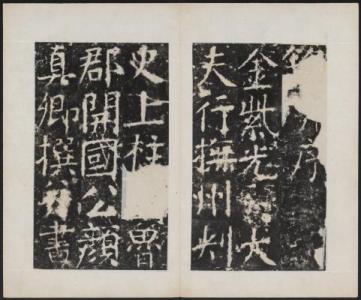 序
金紫光大
夫行撫州刾
史上柱魯
郡開國公顏
真卿撰并書